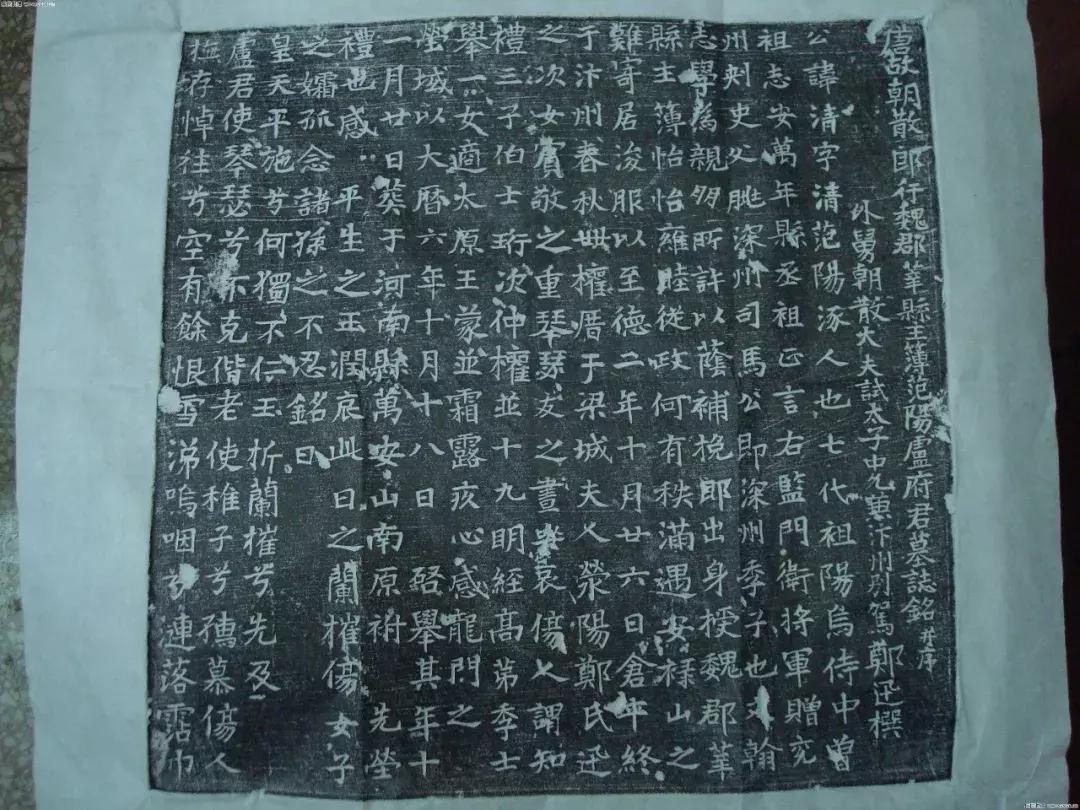 唐故朝散郎行魏郡莘縣主薄范陽盧府君墓誌銘并序
外舅朝散大夫試太子中允兼汴州別駕鄭迅撰
公諱清字清范陽涿人也七代祖陽烏侍中曾
祖志安萬年縣丞祖正言右監門衛將軍贈兖
州刾史父朓深州司馬公即深州季子也文翰
志學為親所許以蔭補挽郎出身授魏郡莘
縣主薄怡怡雍睦從政何有秩滿遇安祿山之
難寄居浚服以至德二年十月廿六日倉卒終
于汴州春秋卌權厝于梁城夫人滎陽鄭氏迅
之次女賓敬之重琴瑟友之晝哀傷人謂知
禮三子伯士珩次仲權並十九明經高第季士
舉一女適太原王蒙並霜露疚心感龍門之
塋域以大曆六年十月十八日啓舉其年十
一月廿日葬于河南縣萬安山南原祔先塋
禮也感平生之玉潤哀此日之蘭摧傷女子
之孀孤念諸孫之不忍銘曰
皇天平施兮何獨不仁玉折蘭摧兮先及
盧君使琴瑟兮不克偕老使稚子兮孺慕傷人
撫存悼往兮空有餘恨雪涕嗚咽兮連落霑巾